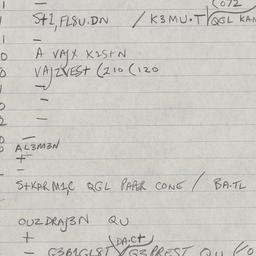 (072
S+1,FL8U.DN / K3MU.T QGL KAN
A VAJX K2S+N
VAJZVES+ (210 (120
AL3M3N
+
S+KARM1,C QGL PAAR CONE / BA.TL
OUZDRAJ3N QU
+ DA.C+
- G3B1GL8T G3PREST QU (/0